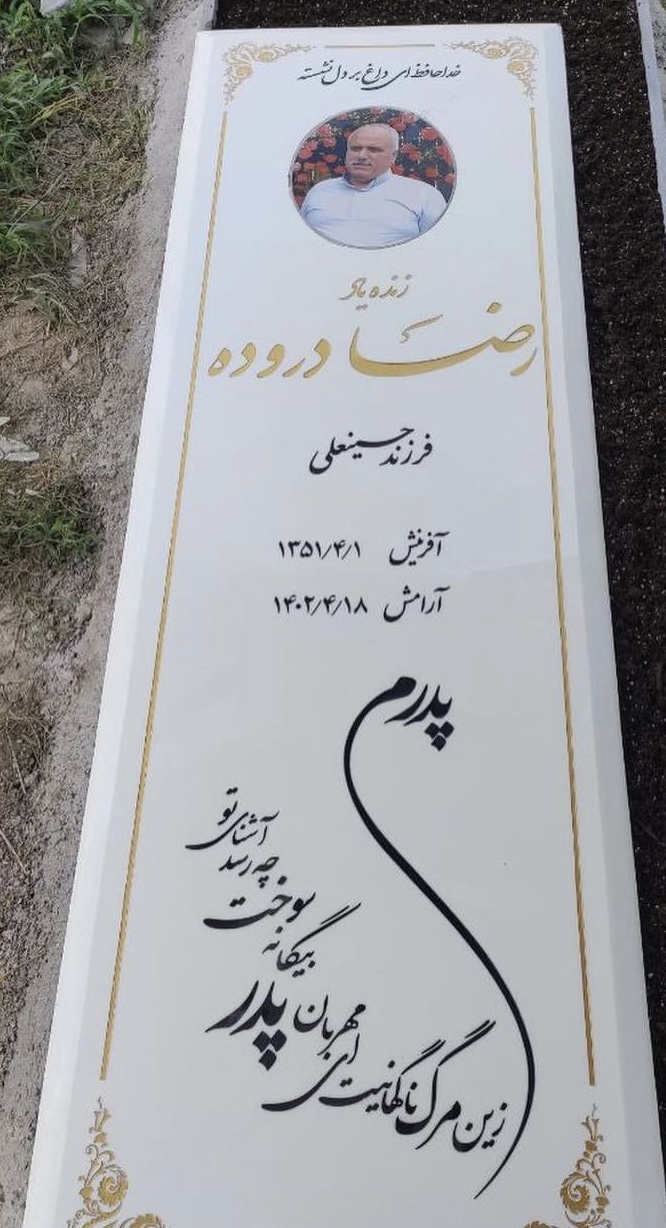 خداحافظ ای داغ بر دل نشسته
زنده یاد
رضا دروده
فرزند حسینعلی
آفرینش ۱۳۵۱/۴/۱
آرامش ۱۴۰۲/۴/۱۸
پدرم
زین مرگ ناگهانیت ای
مهربان پدر
بیگانه
سوخت
چه رسد
آشنای تو